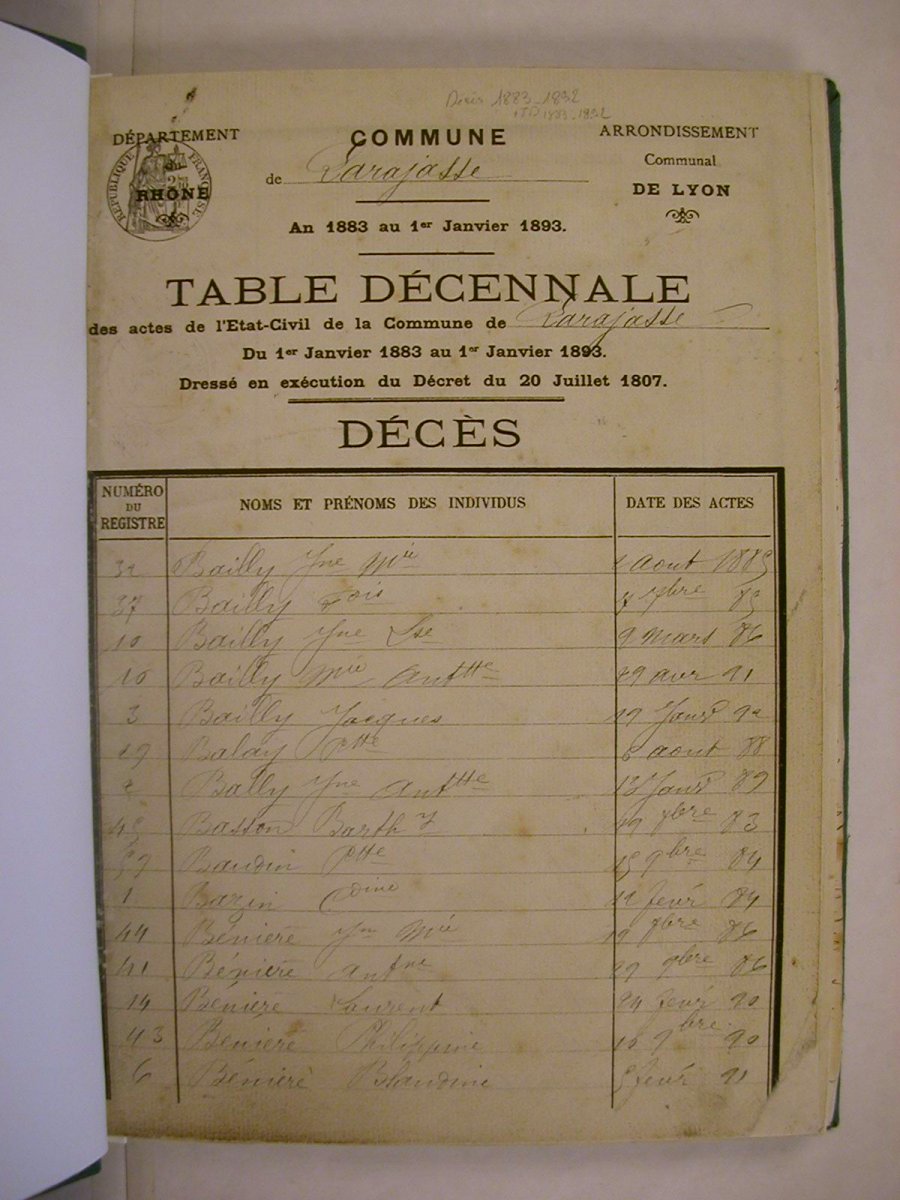 Décès 1883-1892
+TD 1883-1892
DÉPARTEMENT
du
RHÔNE
RÉPUBLIQUE FRANÇAISE
COMMUNE
de Larajasse
ARRONDISSEMENT
Communal
DE LYON
An 1883 au 1er Janvier 1893.
TABLE DÉCENNALE
des actes de l'Etat-Civil de la Commune de Larajasse
Du 1er Janvier 1883 au 1er Janvier 1893.
Dressé en exécution du Décret du 20 Juillet 1807.
DÉCÈS
NUMÉRO DU REGISTRE NOMS ET PRÉNOMS DES INDIVIDUS DATE DES ACTES
32 Bailly Jne Mie aout 1885
37 Bailly Fois 7bre 85
10 Bailly Jne Lse 9 mars 86
10 Bailly Mie Anttte 29 avr 91
3 Bailly Jacques 19 Janr 92
19 Balay Ptte 6 aout 88
2 Bally Jne Anttte 13 Janr 89
45 Basson Barth y 19 9bre 83
59 Baudin Ptte 15 9bre 84
1 Bazin Cdine 12 fevr 84
44 Bénière Jn Mie 19 9bre 86
41 Bénière Antne 29 9bre 86
14 Bénière Laurent 24 fevr 90
43 Bénière Philippine 10 9bre 90
6 Bénière Blandine 5 fevr 91